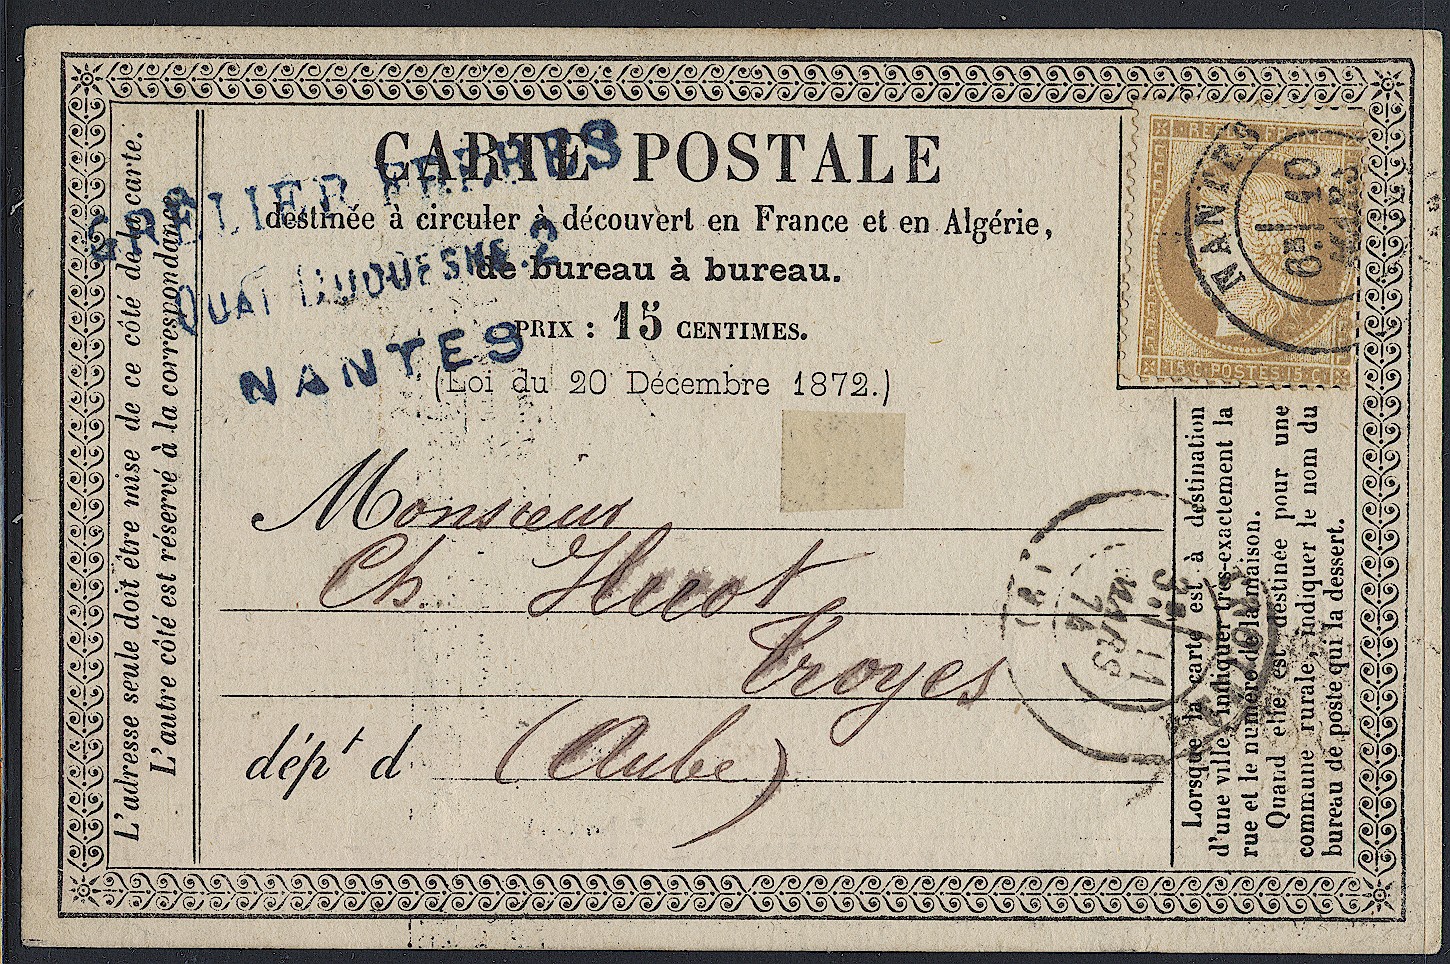 CARTE POSTALE
destinée à circuler à découvert en France et en Algérie,
de bureau à bureau.
PRIX : 15 CENTIMES.
(Loi du 20 Décembre 1872.)
GRELIER FRERES
QUAI DUQUESNE. 2
NANTES
REPUB. FRANC.
15 C. POSTES 15 C.
NANTES
10
MARS
Monsieur
Ch. Hecot
Troyes
dépt d (Aube)
TROYES
3E
11
MARS
74
L'adresse seule doit être mise de ce côté de la carte.
L'autre côté est réservé à la correspondance.
Lorsque la carte est à destination
d'une ville, indiquer très-exactement la
rue et le numéro de la maison.
Quand elle est destinée pour une
commune rurale, indiquer le nom du
bureau de poste qui la dessert.